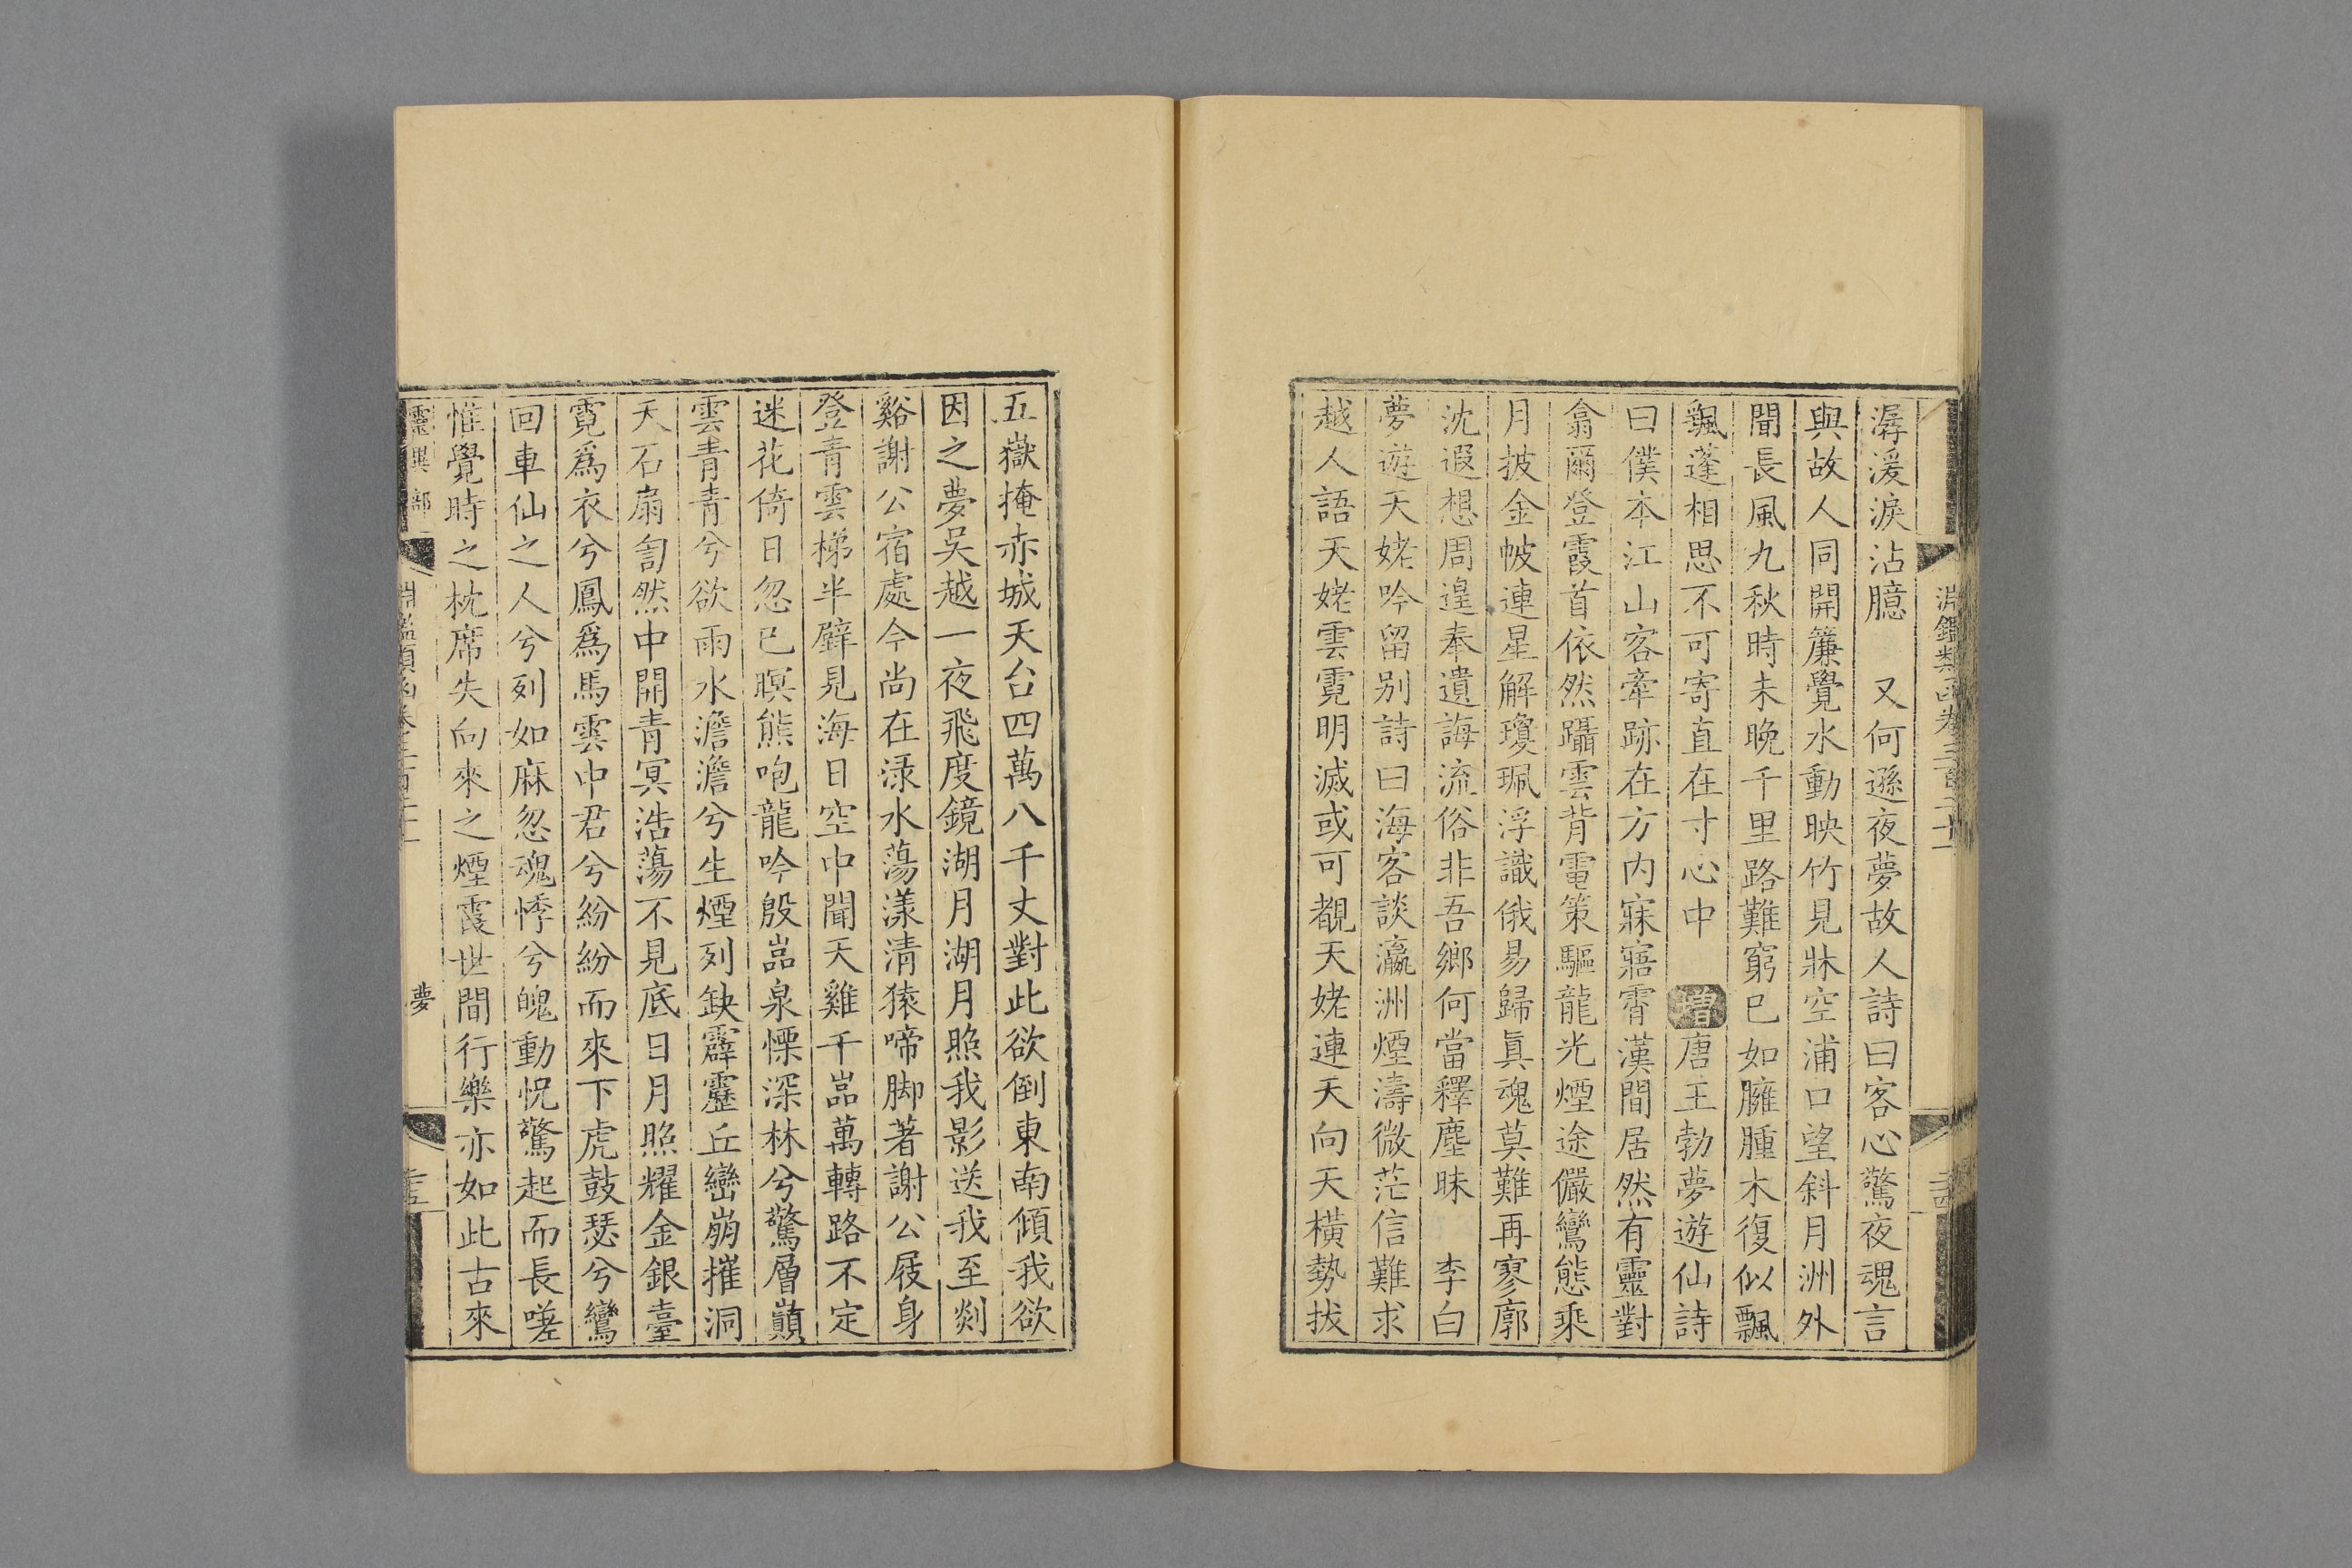 潺湲淚沾臆　又何遜夜夢故人詩曰客心驚夜魂言
與故人同開簾覺水動映竹見牀空浦口望斜月洲外
聞長風九秋時未晚千里路難窮已如臃腫木復似飄
飄蓬相思不可寄直在寸心中　增唐王勃夢遊仙詩
曰僕本江山客牽跡在方內寐寤霄漢間居然有靈對
翕爾登霞首依然躡雲背電策驅龍光煙途儼鸞態乘
月披金帔連星解瓊珮浮識俄易歸真魂莫難再寥廓
沈遐想周遑奉遺誨流俗非吾鄉何當釋塵昧　李白
夢遊天姥吟留別詩曰海客談瀛洲煙濤微茫信難求
越人語天姥雲霓明滅或可覩天姥連天向天橫勢拔
五嶽掩赤城天台四萬八千丈對此欲倒東南傾我欲
因之夢吳越一夜飛度鏡湖月湖月照我影送我至剡
谿謝公宿處今尚在淥水蕩漾清猿啼脚著謝公屐身
登青雲梯半壁見海日空中聞天雞千嵓萬轉路不定
迷花倚日忽已暝熊咆龍吟殷嵓泉慄深林兮驚層巔
雲青青兮欲雨水澹澹兮生煙列缺霹靂丘巒崩摧洞
天石扇訇然中開青冥浩蕩不見底日月照耀金銀臺
霓爲衣兮鳳爲馬雲中君兮紛紛而來下虎鼓瑟兮鸞
回車仙之人兮列如麻忽魂悸兮魄動怳驚起而長嗟
惟覺時之枕席失向來之煙霞世間行樂亦如此古來
靈異部　夢